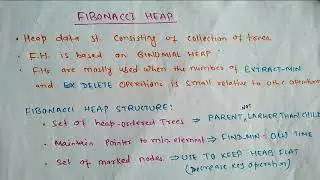 FIBONACCI HEAP
• Heap data St. Consisting of collection of trees.
• F.H. is based on BINOMIAL HEAP.
• F.Hs. are mostly used when the number of EXTRACT-MIN and DELETE OPERATIONS is small relative to other operations
FIBONACCI HEAP STRUCTURE:
• Set of heap-ordered Trees ⇒ PARENT NOT LARHER THAN CHILD
• Maintain Pointer to min element ⇒ FIND_MIN = O(1) TIME
• Set of marked nodes ⇒ USE TO KEEP HEAP FLAT
(Decrease key operation)